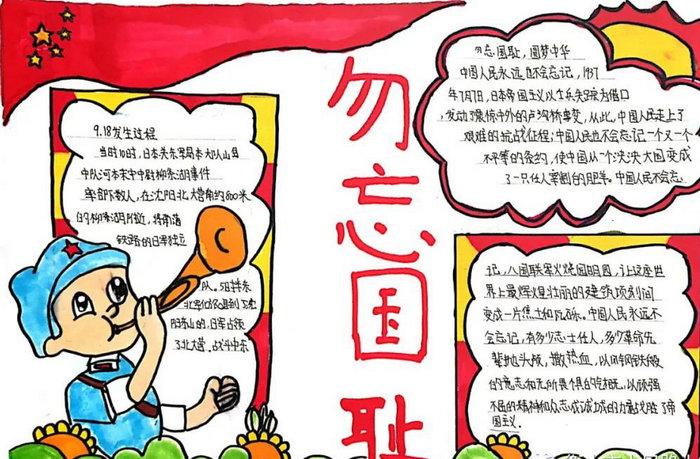 勿忘国耻
9.18发生过程
当时10时,日本关东军岛本大队川岛
中队河本末守中尉柳条湖事件
率部下数人,在沈阳北大营南约800米
的柳条湖附近,将南满
铁路的
队。5日拂
阳东山的,日军占领
了北大营,战斗中东
勿忘国耻,圆梦中华
中国人民永远也不会忘记,1937
年7月7日,日本帝国主义以士兵失踪为借口
发动了震惊中外的卢沟桥事变,从此,中国人民走上了
艰难的抗战征程;中国人民也不会忘记一个又一个
不平等的条约,使中国从一个泱泱大国变成
了一只任人宰割的肥羊。中国人民不会忘
记,八国联军火烧圆明园,让这座世
界上最辉煌壮丽的建筑顷刻间
变成一片焦土和瓦砾。中国人民永远不
会忘记,有多少志士仁人,多少革命先
辈抛头颅,撒热血,以用钢铁般
的意志和无所畏惧的气概,以顽强
不屈的精神和众志成城的力量战胜了帝
国主义.